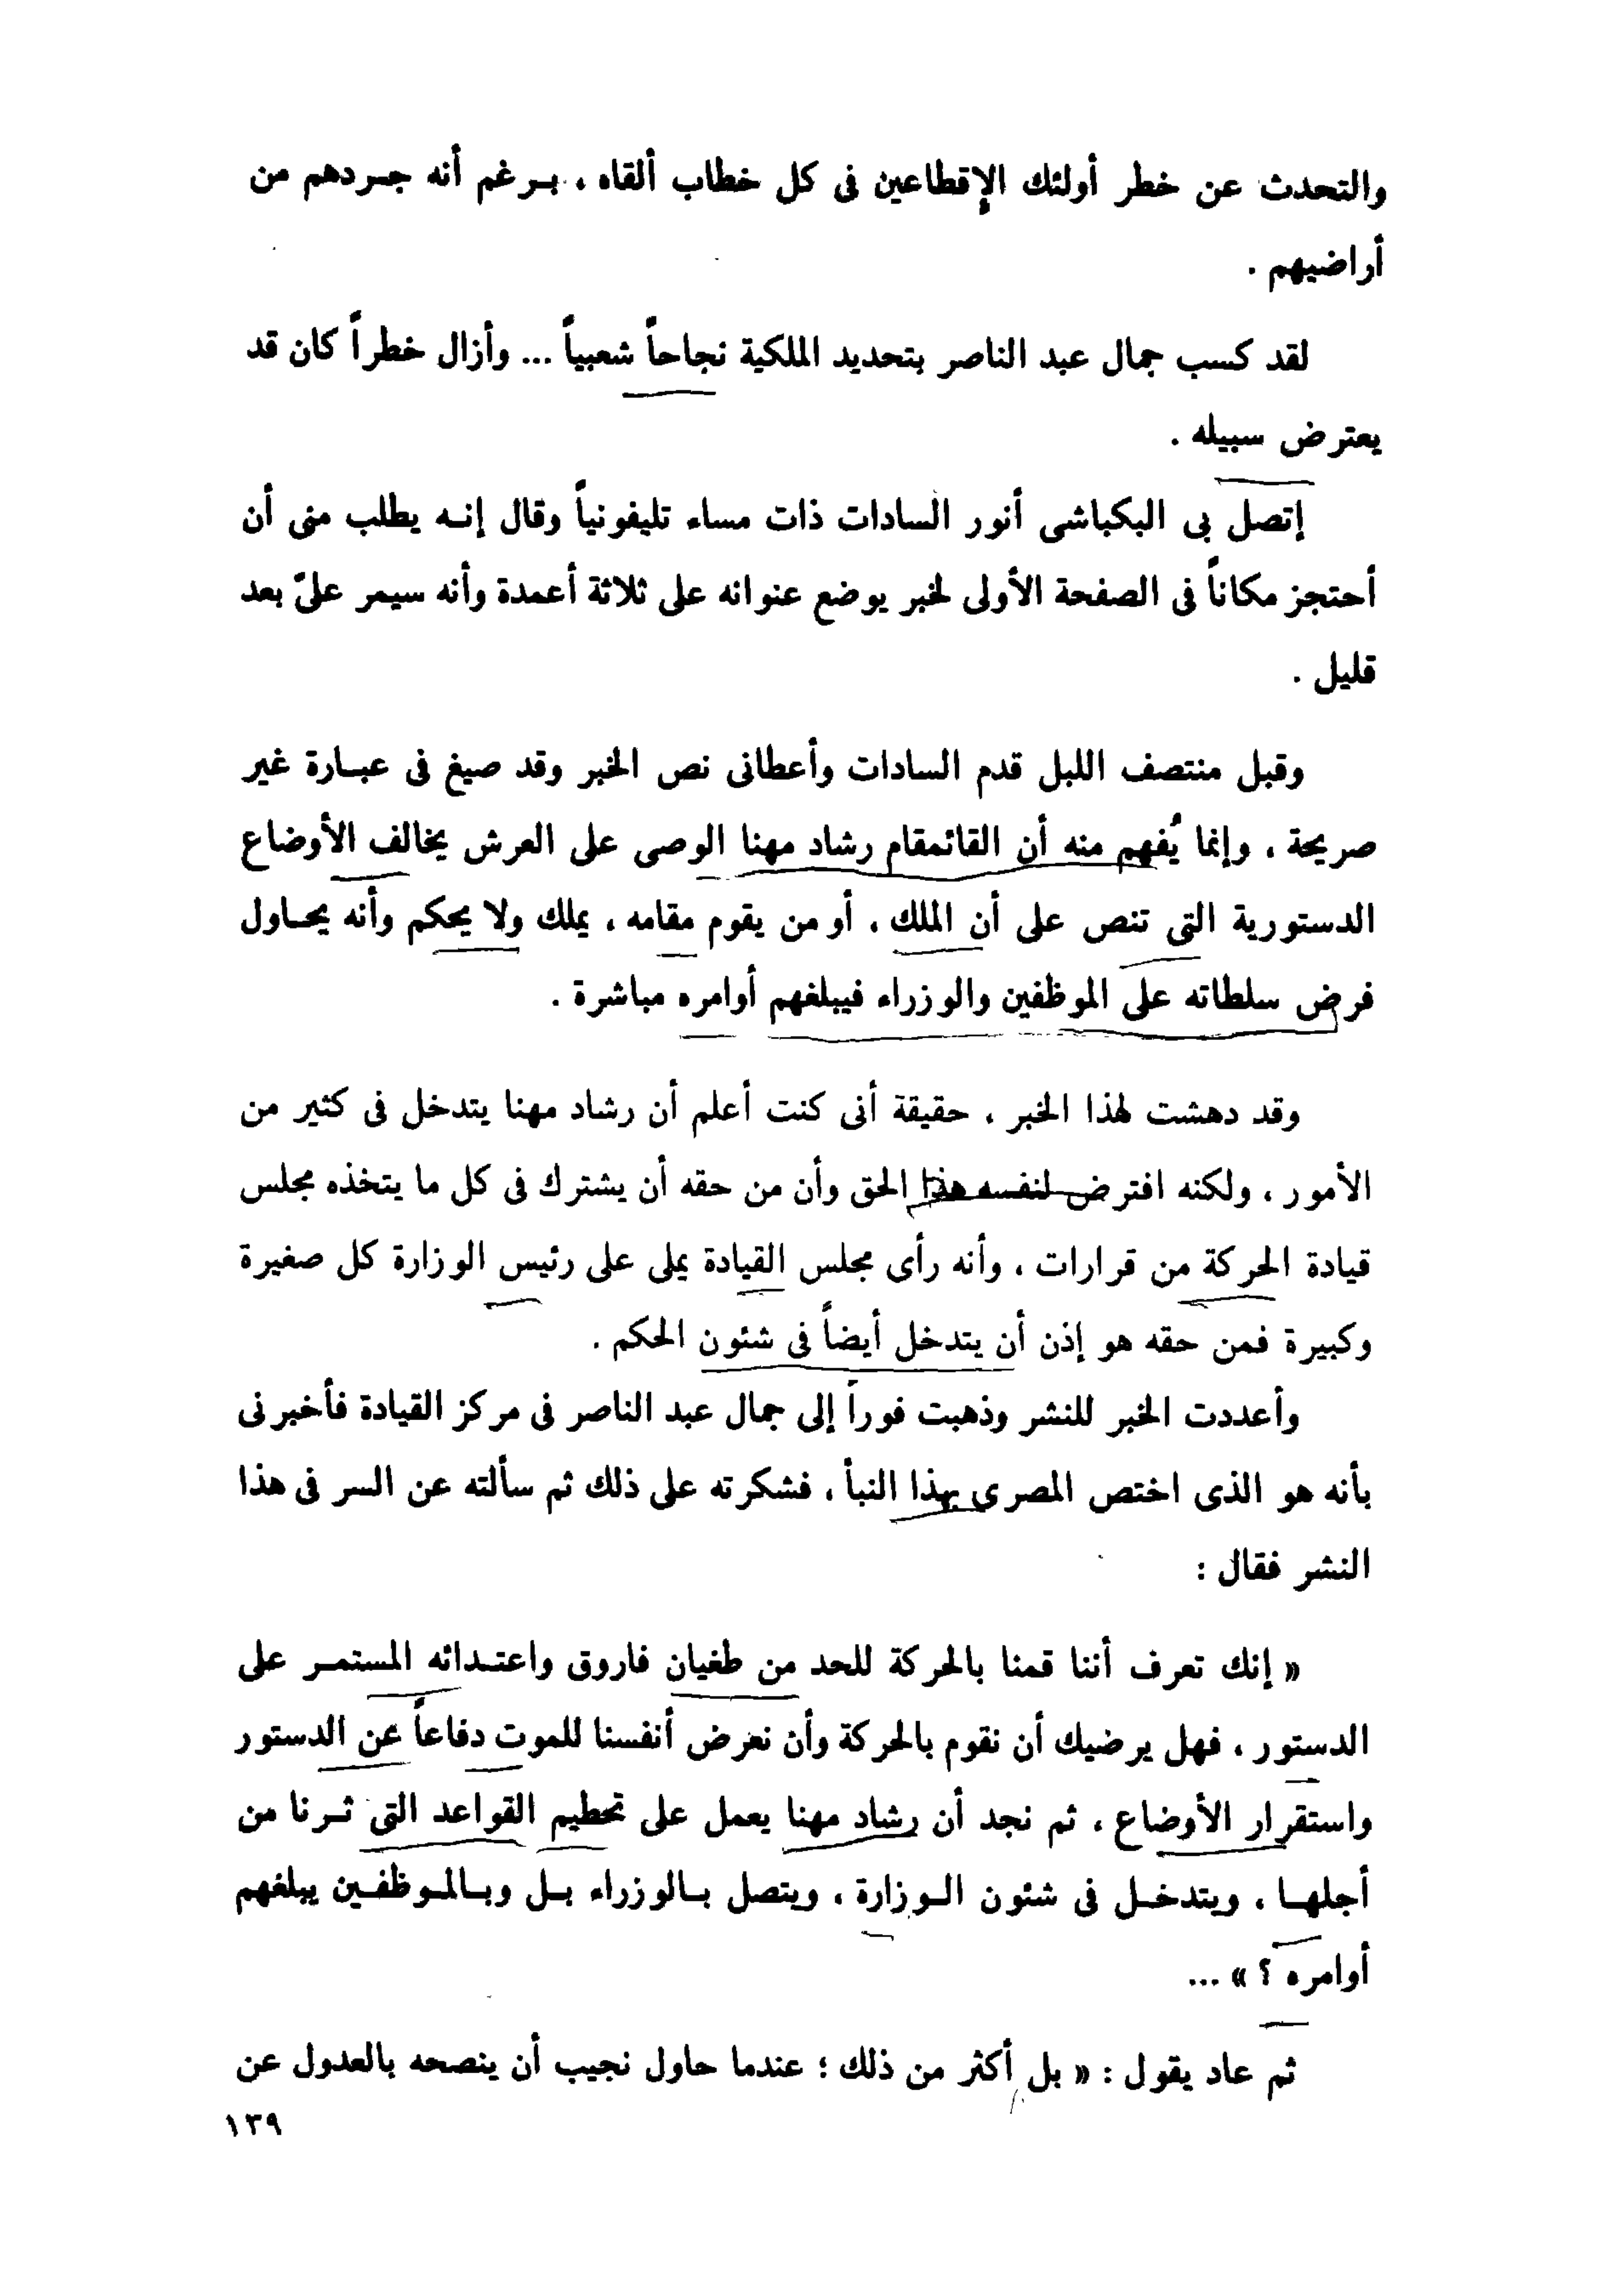 والتحدث عن خطر أولئك الإقطاعين فى كل خطاب ألقاه ، بـرغم أنه جـردهم من
أراضيهم .
لقد كسب جمال عبد الناصر بتحديد الملكية نجاحاً شعبياً ... وأزال خطراً كان قد
يعترض سبيله .
إتصل بى البكباشى أنور السادات ذات مساء تليفونياً وقال إنـه يطلب منى أن
أحتجز مكاناً فى الصفحة الأولى لخبر يوضع عنوانه على ثلاثة أعمدة وأنه سيمر علىّ بعد
قليل .
وقبل منتصف الليل قدم السادات وأعطانى نص الخبر وقد صيغ فى عبـارة غير
صريحة ، وإنما يُفهم منه أن القائمقام رشاد مهنا الوصى على العرش يخالف الأوضاع
الدستورية التى تنص على أن الملك ، أو من يقوم مقامه ، يملك ولا يحكم وأنه يحـاول
فرض سلطاته على الموظفين والوزراء فيبلغهم أوامره مباشرة .
وقد دهشت لهذا الخبر ، حقيقة أنى كنت أعلم أن رشاد مهنا يتدخل فى كثير من
الأمور ، ولكنه افترض لنفسه هذا الحق وأن من حقه أن يشترك فى كل ما يتخذه مجلس
قيادة الحركة من قرارات ، وأنه رأى مجلس القيادة يملى على رئيس الوزارة كل صغيرة
وكبيرة فمن حقه هو إذن أن يتدخل أيضاً فى شئون الحكم .
وأعددت الخبر للنشر وذهبت فوراً إلى جمال عبد الناصر فى مركز القيادة فأخبرنى
بأنه هو الذى اختص المصرى بهذا النبأ ، فشكرته على ذلك ثم سألته عن السر فى هذا
النشر فقال :
« إنك تعرف أننا قمنا بالحركة للحد من طغيان فاروق واعتـدائه المستمـر على
الدستور ، فهل يرضيك أن نقوم بالحركة وأن نعرض أنفسنا للموت دفاعاً عن الدستور
واستقرار الأوضاع ، ثم نجد أن رشاد مهنا يعمل على تحطيم القواعد التى ثـرنا من
أجلهـا ، ويتدخـل فى شئون الـوزارة ، ويتصل بـالوزراء بـل وبـالمـوظفـين يبلغهم
أوامره ؟ » ...
ثم عاد يقول : « بل أكثر من ذلك ؛ عندما حاول نجيب أن ينصحه بالعدول عن
١٣٩